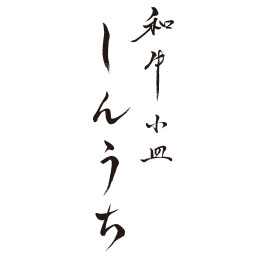 和牛小皿
しんうち